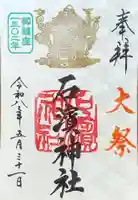 奉拝
大祭
石濱神社
令和八年五月三十一日
御鎮座
一三〇二年